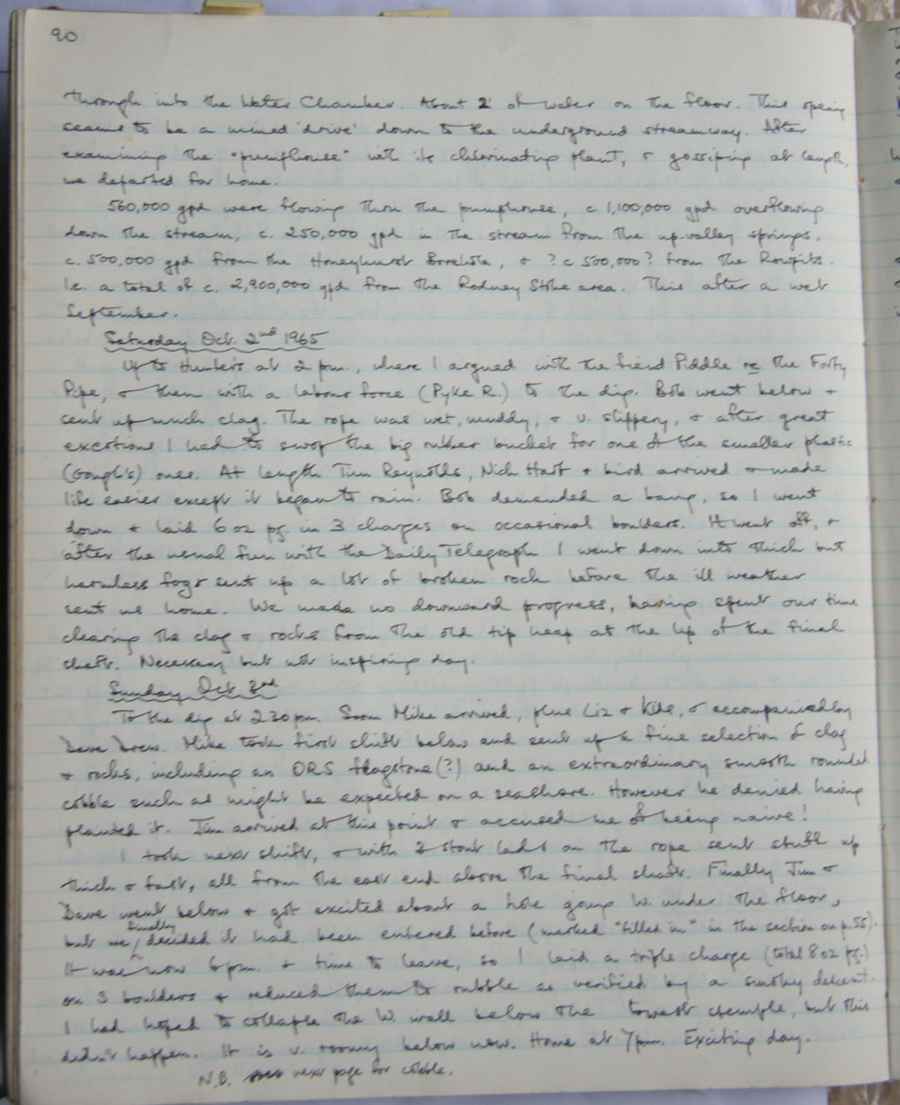 90
through into the Water Chamber. About 2' of water on the floor. This opening
seems to be a mined 'drive' down to the underground streamway. After
examining the "pumphouse" with its chlorinating plant, & gossiping at length,
we departed for home.
560,000 gpd were flowing thru the pumphouse, c 1,100,000 gpd overflowing
down the stream, c. 250,000 gpd in the stream from the up-valley springs.
c. 500,000 gpd from the Honeyhurst Borehole, & ? c 500,000? from the Rowpits.
I.e. a total of c. 2,900,000 gpd from the Rodney Stoke area. This after a wet
September.
Saturday Oct. 2nd 1965
Up to Hunters at 2 pm., where I argued with the fiend Piddle re the Forty
Pipe, & then with a labour force (Pyke R.) to the dig. Bob went below &
sent up much clag. The rope was wet, muddy, & v. slippery, & after great
exertions I had to swop the big rubber bucket for one of the smaller plastic
(Gough's) ones. At length Tim Reynolds, Nich Hart & bird arrived & made
life easier except it began to rain. Bob demanded a bang, so I went
down & laid 6 oz pg. in 3 charges on occasional boulders. It went off, &
after the usual fun with the Daily Telegraph I went down into thick but
harmless fog & sent up a lot of broken rock before the ill weather
sent us home. We made no downward progress, having spent our time
clearing the clag & rocks from the old tip heap at the lip of the final
shaft. Necessary but not inspiring day.
Sunday Oct 3rd
To the dig at 2 30 pm. Soon Mike arrived, plus Liz & kids, & accompanied by
Dave Drew. Mike took first shift below and sent up a fine selection of clag
& rocks, including an ORS flagstone (?) and an extraordinary smooth rounded
cobble such as might be expected on a seashore. However he denied having
planted it. Jim arrived at this point & accused me of being naive!
I took next shift, & with 3 stout lads on the rope sent stuff up
thick & fast, all from the east end above the final shaft. Finally Jim &
Dave went below & got excited about a hole going W. under the floor,
but we finally decided it had been entered before (marked "filled in" in the section on p. 55).
It was now 6 pm. & time to leave, so I laid a triple charge (total 8 oz pg.)
on 3 boulders & reduced them to rubble as verified by a smoky descent.
I had hoped to collapse the W. wall below the lowest stemple, but this
didn't happen. It is v. roomy below now. Home at 7pm. Exciting day.
N.B. next page for cobble.